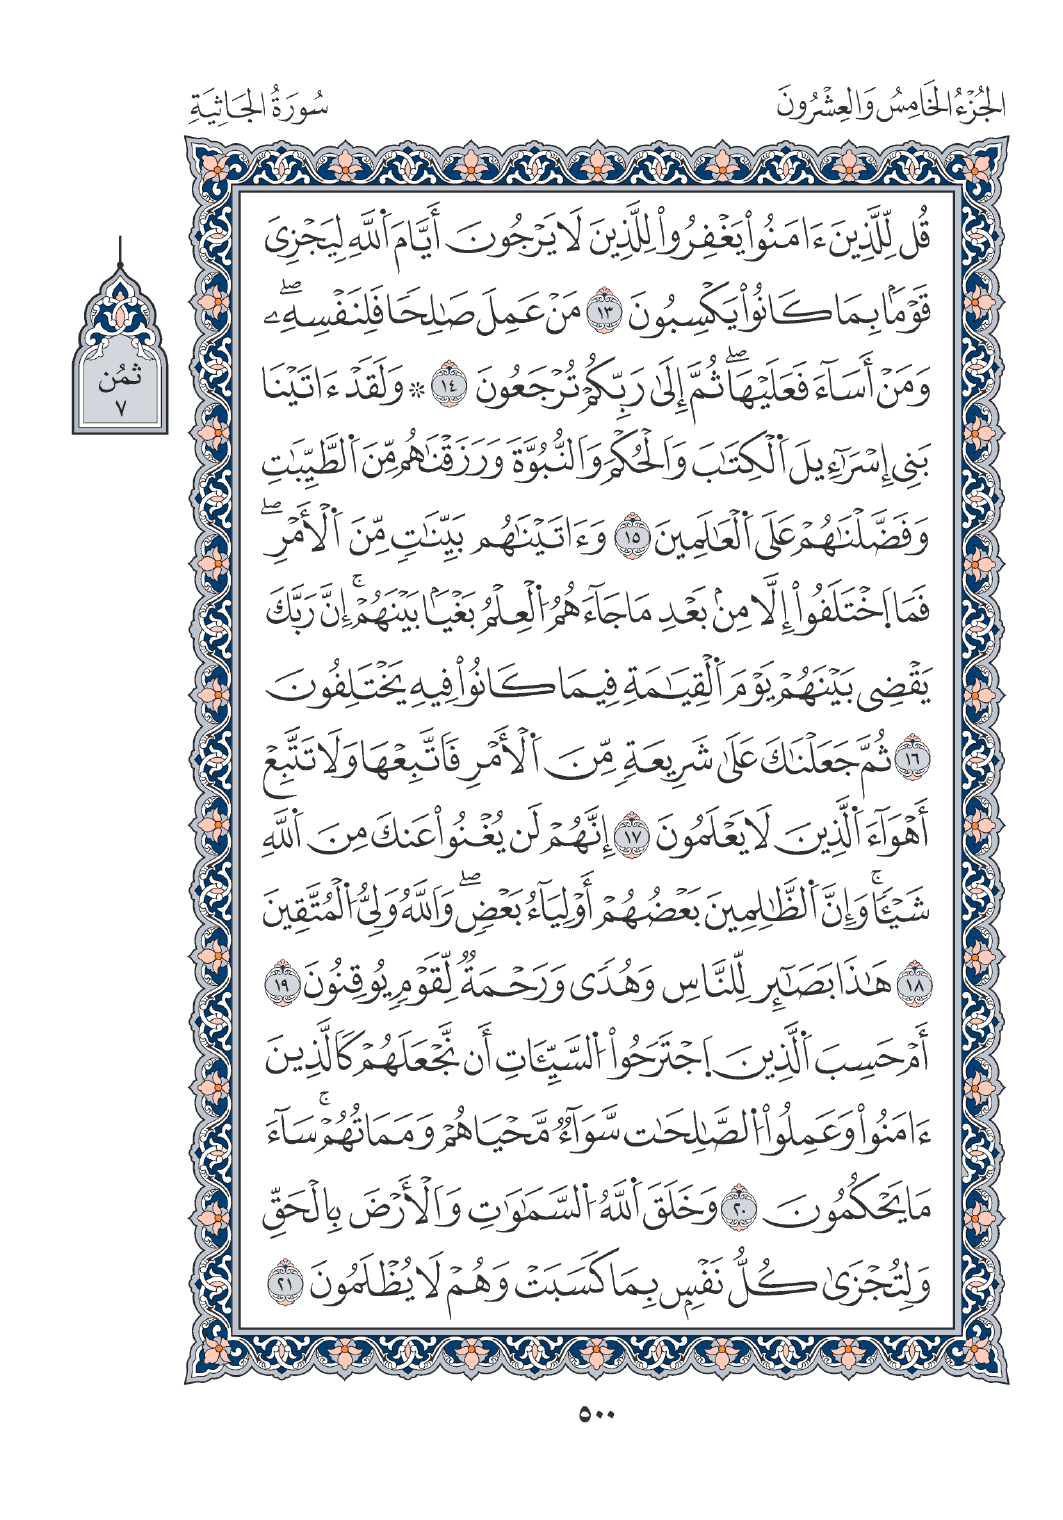 الجُزْءُ الخَامِسُ وَالعِشْرُونَ
سُورَةُ الجَاثِيَةِ
قُل لِّلَّذِينَ ءَامَنُواْ يَغْفِرُواْ لِلَّذِينَ لَا يَرْجُونَ أَيَّامَ اَ۬للَّهِ لِيَجْزِيَ
قَوْمَاۢ بِمَا كَانُواْ يَكْسِبُونَ ١٣ مَنْ عَمِلَ صَٰلِحَا فَلِنَفْسِهِۦۖ
وَمَنْ أَسَآءَ فَعَلَيْهَاۖ ثُمَّ إِلَىٰ رَبِّكُمْ تُرْجَعُونَ ١٤ ۞ وَلَقَدْ ءَاتَيْنَا
بَنِي إِسْرَآءِيلَ اَ۬لْكِتَٰبَ وَالْحُكْمَ وَالنُّبُوَّةَ وَرَزَقْنَٰهُم مِّنَ اَ۬لطَّيِّبَٰتِ
وَفَضَّلْنَٰهُمْ عَلَى اَ۬لْعَٰلَمِينَ ١٥ وَءَاتَيْنَٰهُم بَيِّنَٰتٍ مِّنَ اَ۬لْأَمْرِۖ
فَمَا اَ۪خْتَلَفُواْ إِلَّا مِنۢ بَعْدِ مَا جَآءَهُمُ اُ۬لْعِلْمُ بَغْيَاۢ بَيْنَهُمْۚ إِنَّ رَبَّكَ
يَقْضِي بَيْنَهُمْ يَوْمَ اَ۬لْقِيَٰمَةِ فِيمَا كَانُواْ فِيهِ يَخْتَلِفُونَ
١٦ ثُمَّ جَعَلْنَٰكَ عَلَىٰ شَرِيعَةٍ مِّنَ اَ۬لْأَمْرِ فَاتَّبِعْهَا وَلَا تَتَّبِعْ
أَهْوَآءَ اَ۬لَّذِينَ لَا يَعْلَمُونَ ١٧ إِنَّهُمْ لَن يُغْنُواْ عَنكَ مِنَ اَ۬للَّهِ
شَيْـَٔاۚ وَإِنَّ اَ۬لظَّٰلِمِينَ بَعْضُهُمْ أَوْلِيَآءُ بَعْضٍۖ وَاللَّهُ وَلِيُّ اُ۬لْمُتَّقِينَ
١٨ هَٰذَا بَصَٰٓئِرُ لِلنَّاسِ وَهُدَى وَرَحْمَةٌ لِّقَوْمٍ يُوقِنُونَ ١٩
أَمْ حَسِبَ اَ۬لَّذِينَ اَ۪جْتَرَحُواْ اُ۬لسَّيِّـَٔاتِ أَن نَّجْعَلَهُمْ كَالَّذِينَ
ءَامَنُواْ وَعَمِلُواْ اُ۬لصَّٰلِحَٰت سَّوَآءٌ مَّحْيَاهُمْ وَمَمَاتُهُمْۚ سَآءَ
مَا يَحْكُمُونَ ٢٠ وَخَلَقَ اَ۬للَّهُ اُ۬لسَّمَٰوَٰتِ وَالْأَرْضَ بِالْحَقِّ
وَلِتُجْزَىٰ كُلُّ نَفْسٍۢ بِمَا كَسَبَتْ وَهُمْ لَا يُظْلَمُونَ ٢١
ثمُن
٧
٥٠٠